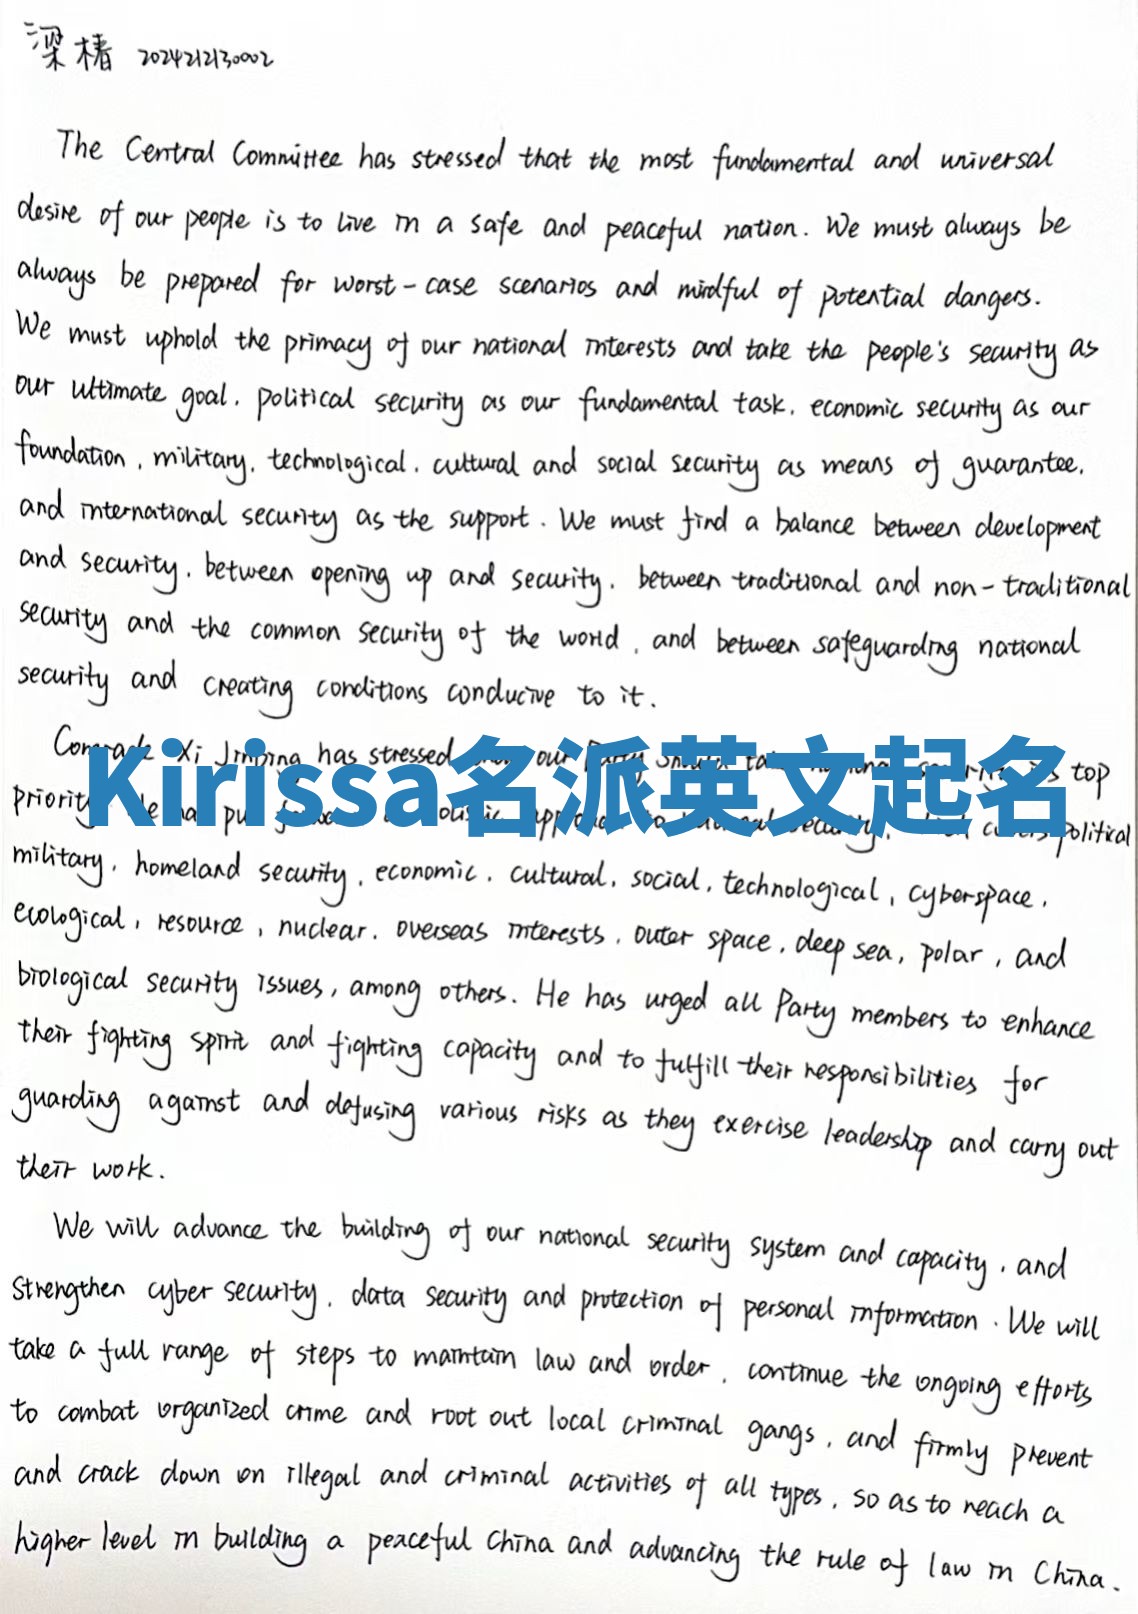 梁椿 2024212130002
The Central Committee has stressed that the most fundamental and universal
desire of our people is to live in a safe and peaceful nation. We must always be
always be prepared for worst-case scenarios and mindful of potential dangers.
We must uphold the primacy of our national interests and take the people's security as
our ultimate goal, political security as our fundamental task, economic security as our
foundation, military, technological, cultural and social security as means of guarantee,
and international security as the support. We must find a balance between development
and security, between opening up and security, between traditional and non-traditional
security and the common security of the world, and between safeguarding national
security and creating conditions conducive to it.
Comrade Xi Jinping has stressed our Party top
Kirissa名派英文起名
priority political
military, homeland security, economic, cultural, social, technological, cyberspace,
ecological, resource, nuclear, overseas interests, outer space, deep sea, polar, and
biological security issues, among others. He has urged all Party members to enhance
their fighting spirit and fighting capacity and to fulfill their responsibilities for
guarding against and defusing various risks as they exercise leadership and carry out
their work.
We will advance the building of our national security system and capacity, and
strengthen cyber security, data security and protection of personal information. We will
take a full range of steps to maintain law and order, continue the ongoing efforts
to combat organized crime and root out local criminal gangs, and firmly prevent
and crack down on illegal and criminal activities of all types, so as to reach a
higher level in building a peaceful China and advancing the rule of law in China.